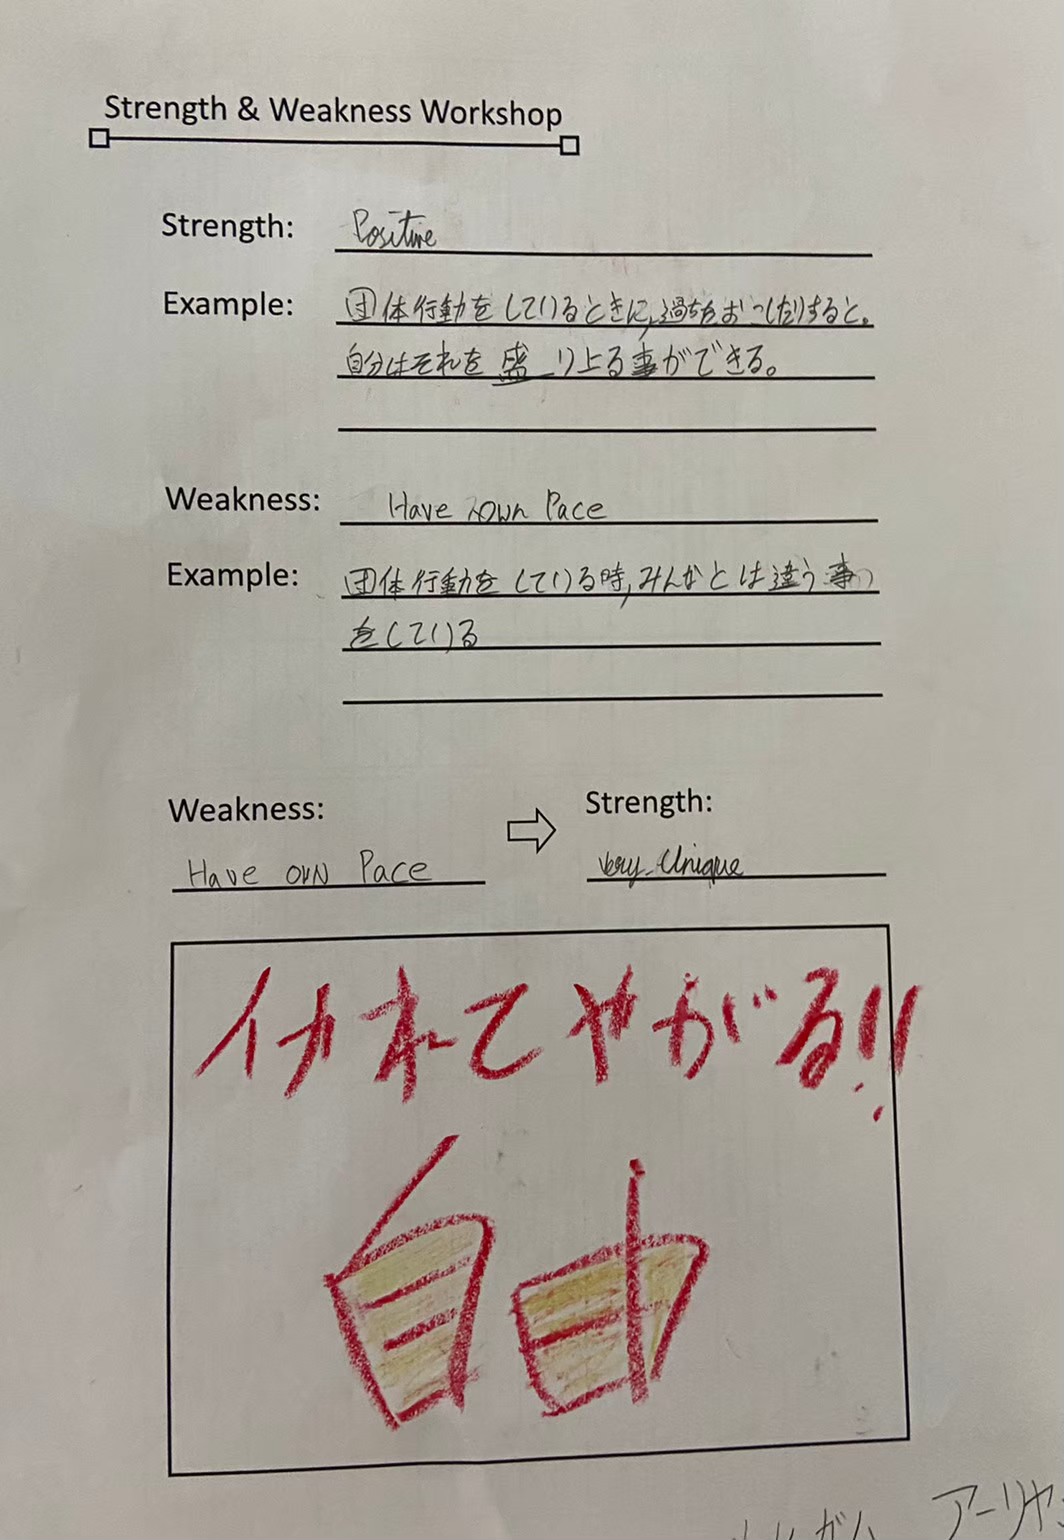 Strength & Weakness Workshop
Strength: Positive
Example: 団体行動をしているときに,過ちをおこしたりすると。
自分はそれを盛り上る事ができる。
Weakness: Have own Pace
Example: 団体行動をしている時,みんなとは違う事
をしている
Weakness:
Have own Pace
Strength:
Very Unique
イカれてやがる!!
自由
アーリヤ